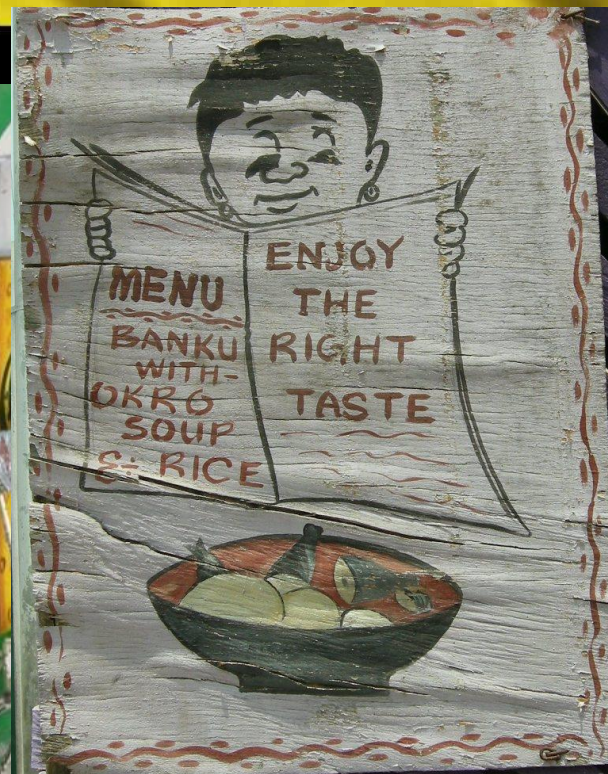 MENU
BANKU
WITH-
OKRO
SOUP
& RICE
ENJOY
THE
RIGHT
TASTE